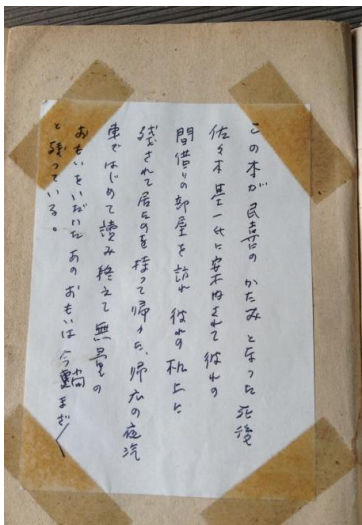 この本が民喜の かたみ となった 死後
佐々木基一氏に案内されて彼れの
間借りの部屋を訪れ 彼れの机上に
残されて居たのを持って帰った、帰広の夜汽
車ではじめて読み終えて無量の
おもいをいだいたあの おもいは 今尚まざ〳〵
と残っている。